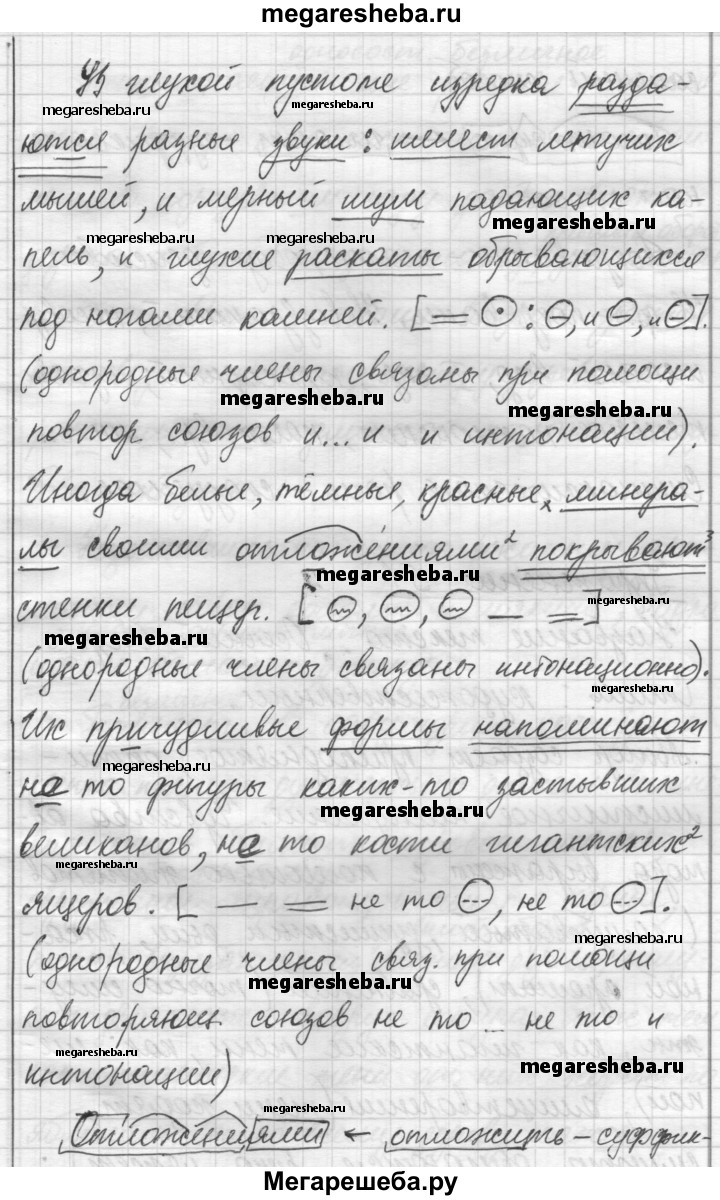 megaresheba.ru
45 глухой пустоте изредка разда-
megaresheba.ru megaresheba.ru
ются разные звуки: шелест летучих
мышей, и мерный шум падающих ка-
megaresheba.ru
megaresheba.ru megaresheba.ru
пель, и глухие раскаты обрывающихся
под ногами камней. [═ ⊙: ⊖, и ⊖, и ⊖].
(однородные члены связаны при помощи
megaresheba.ru
megaresheba.ru
повтор союзов и... и и интонации).
Иногда белые, тёмные, красные, минера-
лы своими отложениями² покрывают³
megaresheba.ru
стенки пещер. [~, ~, ~ — ═]
megaresheba.ru
megaresheba.ru
(однородные члены связаны интонационно).
megaresheba.ru
Их причудливые формы напоминают
megaresheba.ru
не то фигуры каких-то застывших
megaresheba.ru
великанов, не то кости гигантских²
megaresheba.ru
ящеров. [— ═ не то ⊖, не то ⊖].
megaresheba.ru
(однородные члены связ. при помощи
megaresheba.ru
повторяющ. союзов не то ... не то и
megaresheba.ru
megaresheba.ru
интонации)
Отложениями ← отложить – суффик-
Мегарешеба.ру